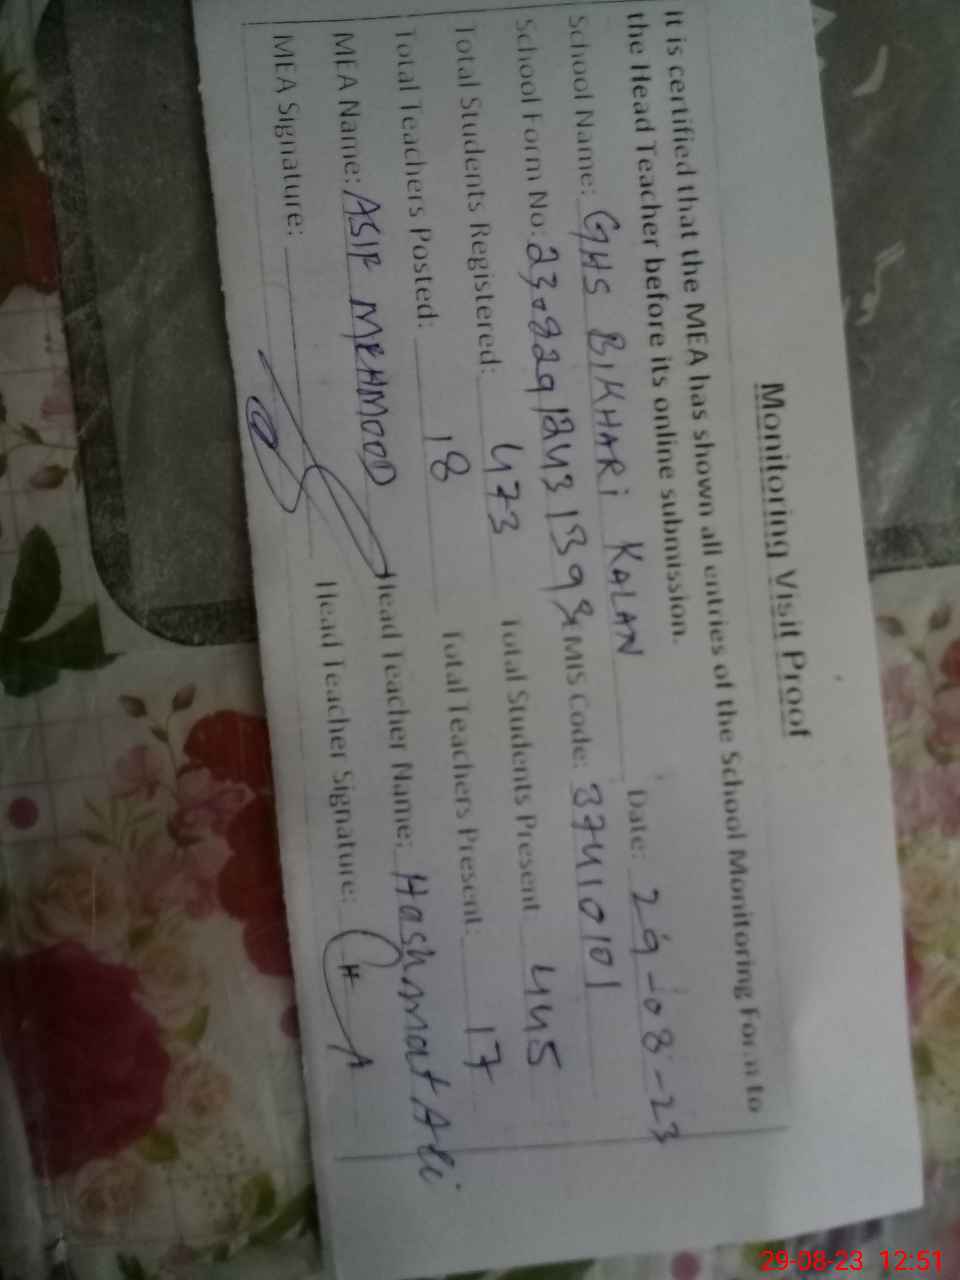 Monitoring Visit Proof
It is certified that the MEA has shown all entries of the School Monitoring Form to
the Head Teacher before its online submission.
School Name: GHS BIKHARI KALAN Date: 29-08-23
School Form No: 230829124313398 EMIS Code: 37410101
Total Students Registered: 473 Total Students Present 445
Total Teachers Posted: 18 Total Teachers Present: 17
MEA Name: ASIF MEHMOOD Head Teacher Name: Hashmat Ali
MEA Signature: Head Teacher Signature: H A
29-08-23 12:51